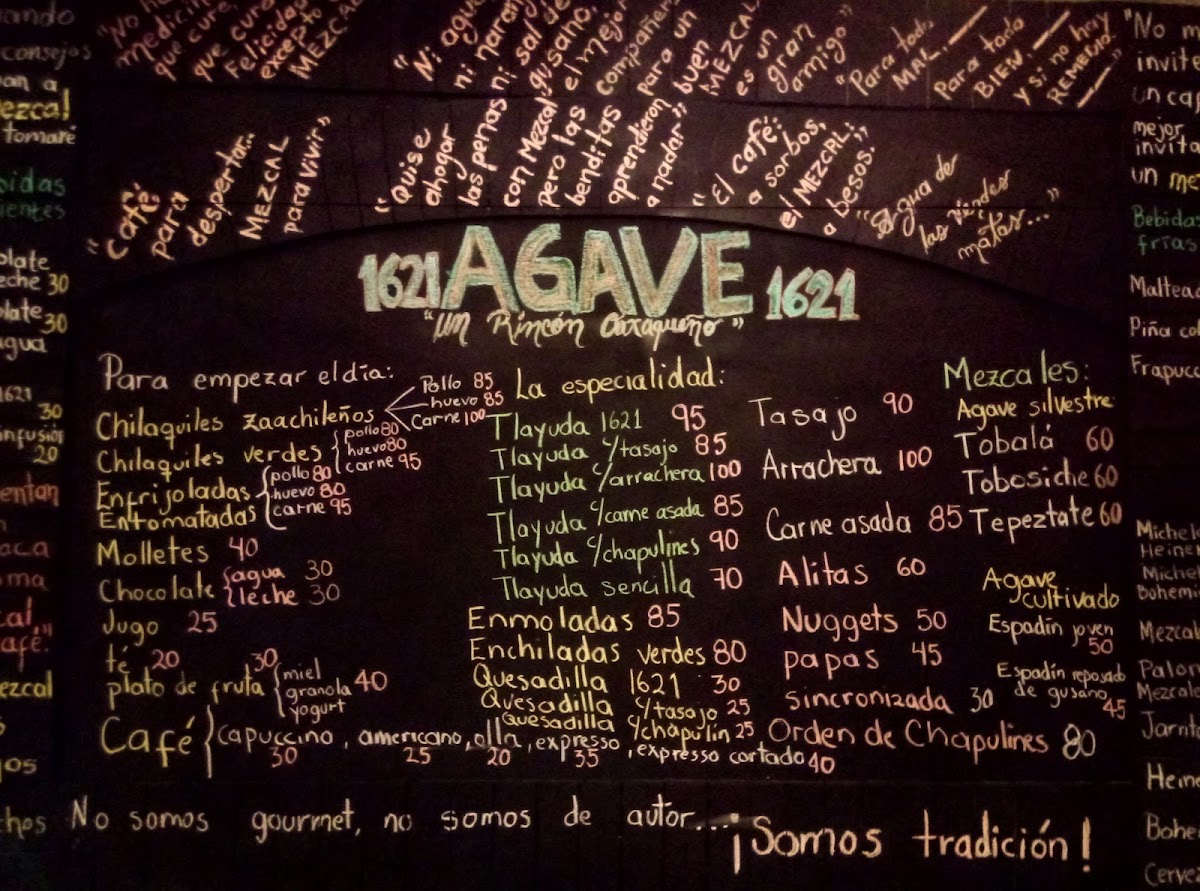 "No
medicin
que cure,
que cure
Felicidad
excepto
MEZCAL
"Ni agua
ni naran
ni sal de
gusano,
el mejor
compañer
para un
buen
MEZCAL
es un
gran
amigo"
"Para todo
MAL,
Para todo
BIEN,
y si no hay
REMEDIO.
"Café:
para
despertar...
MEZCAL
para vivir"
"Quise
ahogar
las penas
con Mezcal,
pero las
benditas
aprendieron
a nadar"
"El café:
a sorbos,
el MEZCAL:
a besos."
"Agua de
las verdes
matas..."
1621 AGAVE 1621
"Un Rincón Oaxaqueño"
Para empezar el día:
Chilaquiles zaachileños
Pollo 85
huevo 85
Carne 100
Chilaquiles verdes
pollo 80
huevo 80
carne 95
Enfrijoladas
Entomatadas
pollo 80
huevo 80
carne 95
Molletes 40
Chocolate
agua 30
leche 30
Jugo 25
té 20
plato de fruta 30
miel
granola 40
yogurt
Café
capuccino, americano, olla, expresso, expresso cortado
30 25 20 35 40
La especialidad:
Tlayuda 1621 95
Tlayuda c/tasajo 85
Tlayuda c/arrachera 100
Tlayuda c/carne asada 85
Tlayuda c/chapulines 90
Tlayuda sencilla 70
Enmoladas 85
Enchiladas verdes 80
Quesadilla 1621 30
Quesadilla c/tasajo 25
Quesadilla c/chapulín 25
Tasajo 90
Arrachera 100
Carne asada 85
Alitas 60
Nuggets 50
papas 45
sincronizada 30
Orden de Chapulines 80
Mezcales:
Agave silvestre
Tobalá 60
Tobosiche 60
Tepeztate 60
Agave
cultivado
Espadín joven
50
Espadín reposado
de gusano
45
No somos gourmet, no somos de autor...
¡Somos tradición!
ando
consejos
an a
ezcal
tomaré
bidas
ientes
olate
eche 30
olate
30
agua
1621
30
infusión
20
entan
aca
ma
cal
afé."
ezcal
os
chos
"No m
invite
un ca
mejor
invita
un me
Bebida
frías
Maltead
Piña co
Frapucc
Michel
Heine
Michel
Bohem
Mezcal
Palo
Mezcal
Jarrit
Heine
Bohe
Cerve